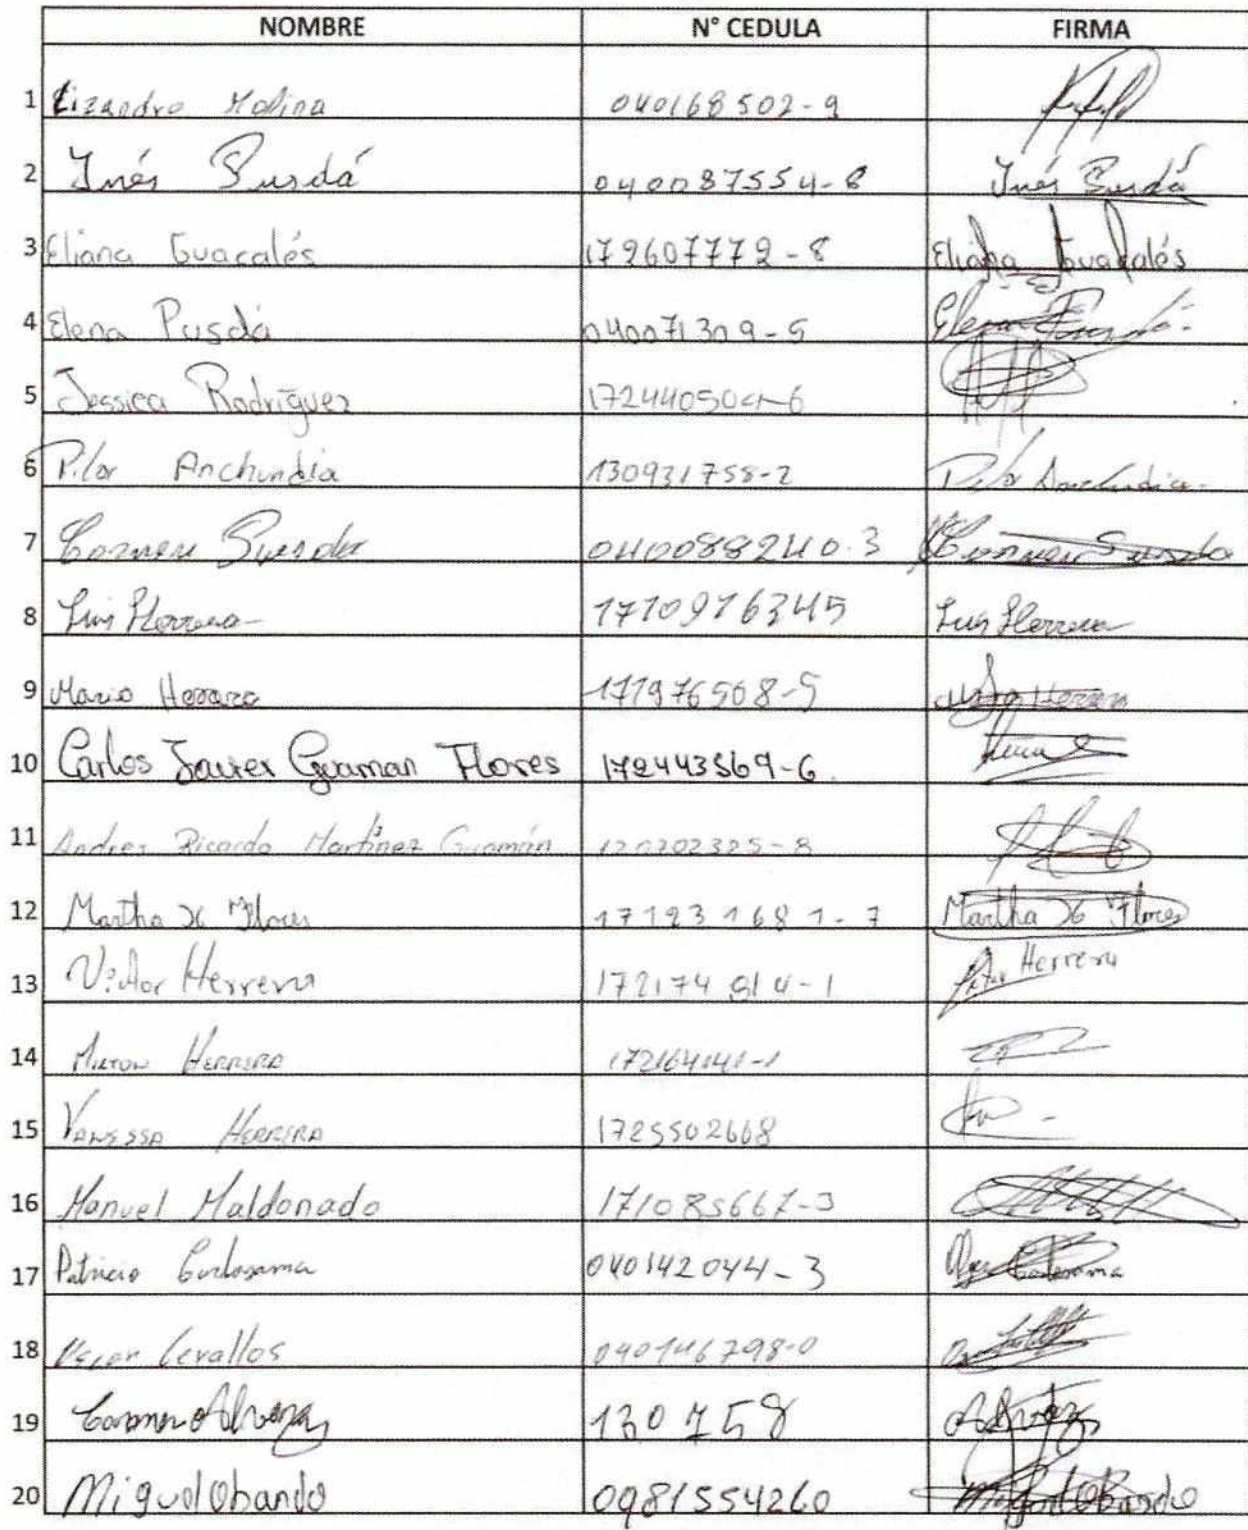 NOMBRE N° CEDULA FIRMA
1 Lizandro Molina 040168502-9
2 Inés Pusdá 040087554-8 Inés Pusdá
3 Eliana Guacalés 172607772-8 Eliana Guacalés
4 Elena Pusdá 040071309-5 Elena Pusdá
5 Jessica Rodríguez 172440504-6
6 Pilar Anchundia 130931758-2 Pilar Anchundia
7 Carmen Pusda 040088240.3 Carmen Pusda
8 Luis Herrera 1710976345 Luis Herrera
9 Mario Herrera 171976508-5 Herrera
10 Carlos Javier Guaman Flores 172443569-6
11 Andres Ricardo Martínez Guamán
12 Martha X Flores 171231681-7 Martha X Flores
13 Victor Herrera 172174914-1 Herrera
14 Milton Herrera
15 Vanessa Herrera 1725502668
16 Manuel Maldonado 171085667-3
17 Patricio Cadosama 040142044-3
18 Cevallos 040146798-0
19 Carmen Alvarez 130758
20 Miguel Obando 0981554260 Miguel Obando